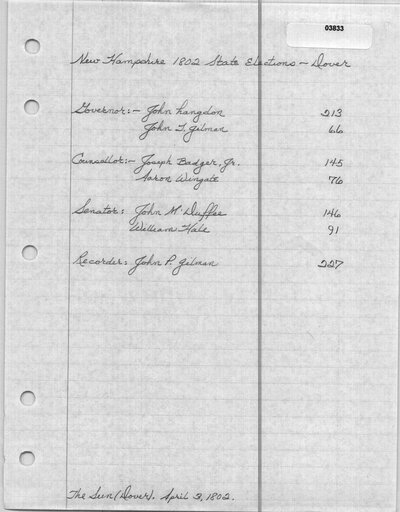 03833
New Hampshire 1802 State Elections - Dover
Governor:- John Langdon 213
John T. Gilman 66
Counsellor:- Joseph Badger, Jr. 145
Aaron Wingate 76
Senator: John McDuffee 146
William Hale 91
Recorder: John P. Gilman 227
The Sun (Dover). April 3, 1802.